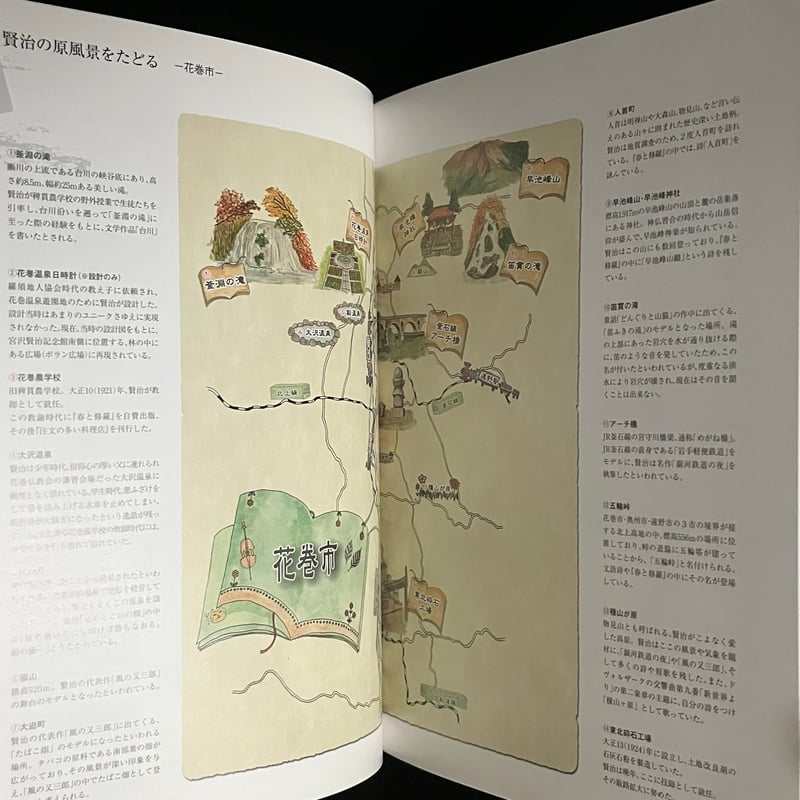 賢治の原風景をたどる －花巻市－
①釜淵の滝
瀬川の上流である台川の峡谷底にあり、高
さ約8.5m、幅約25mある美しい滝。
賢治が稗貫農学校の野外授業で生徒たちを
引率し、台川沿いを遡って「釜淵の滝」に
至った際の経験をもとに、文学作品「台川」
を書いたとされる。
②花巻温泉日時計(※設計のみ)
羅須地人協会時代の教え子に依頼され、
花巻温泉遊園地のために賢治が設計した。
設計当時はあまりのユニークさゆえに実現
されなかった。現在、当時の設計図をもとに、
宮沢賢治記念館南側に位置する、林の中に
ある広場(ポラン広場)に再現されている。
③花巻農学校
旧稗貫農学校。大正10(1921)年、賢治が教
師として就任。
この教諭時代に『春と修羅』を自費出版、
その後『注文の多い料理店』を刊行した。
④大沢温泉
賢治は少年時代、信仰心の厚い父に連れられ
花巻仏教会の講習会場だった大沢温泉に
幾度となく訪れている。学生時代、悪ふざけを
して
⑥猫山
標高920m。賢治の代表作「風の又三郎」
の舞台のモデルとなったといわれている。
⑦大迫町
賢治の代表作「風の又三郎」に出てくる、
「たばこ畑」のモデルになったといわれる
場所。タバコの原料である南部葉の畑が
広がっており、その風景が深い印象を与
え、「風の又三郎」の中でたばこ畑として登
釜淵の滝
花巻温泉
日時計
早池峰
神社
早池峰山
笛貫の滝
猫山
大沢温泉
釜石線
アーチ橋
北上線
釜石線
種山が原
花巻市
東北砕石
工場
⑧人首町
人首は明神山や大森山、物見山、など言い伝
えのある山々に囲まれた歴史深い土地柄。
賢治は地質調査のため、2度人首町を訪れ
ている。『春と修羅』の中では、詩「人首町」を
詠んでいる。
⑨早池峰山・早池峰神社
標高1,917mの早池峰山の山頂と麓の岳集落
にある神社。神仏習合の時代から山岳信
仰が盛んで、早池峰神楽が知られている。
賢治はこの山にも数回登っており、『春と
修羅』の中に「早池峰山巓」という詩を残し
ている。
⑩笛貫の滝
童話「どんぐりと山猫」の作中に出てくる、
「笛ふきの滝」のモデルとなった場所。滝
の上部にあった岩穴を水が通り抜ける際
に、笛のような音を発していたため、この
名が付いたといわれているが、度重なる洪
水により岩穴が壊され、現在はその音を聞
くことは出来ない。
⑪アーチ橋
JR釜石線の宮守川橋梁、通称「めがね橋」。
JR釜石線の前身である「岩手軽便鉄道」を
モデルに、賢治は名作「銀河鉄道の夜」を
執筆したといわれている。
⑫五輪峠
花巻市・奥州市・遠野市の3市の境界が接
する北上高地の中、標高556mの場所に位
置しており、峠の道脇に五輪塔が建って
いることから、「五輪峠」と名付けられる。
文語詩や『春と修羅』の中にその名が登場
している。
⑬種山が原
物見山とも呼ばれる、賢治がこよなく愛
した高原。賢治はここの風景や気象を題
材に、「銀河鉄道の夜」や「風の又三郎」、そ
して多くの詩や短歌を残した。また、ド
ヴォルザークの交響曲第九番「新世界よ
り」の第二楽章の主題に、自分の詩をつけ
「種山ヶ原」として歌っていた。
⑭東北砕石工場
大正13(1924)年に設立し、土地改良剤の
石灰石粉を製造していた。
賢治は晩年、ここに技師として就任。
その販路拡大に努めた。